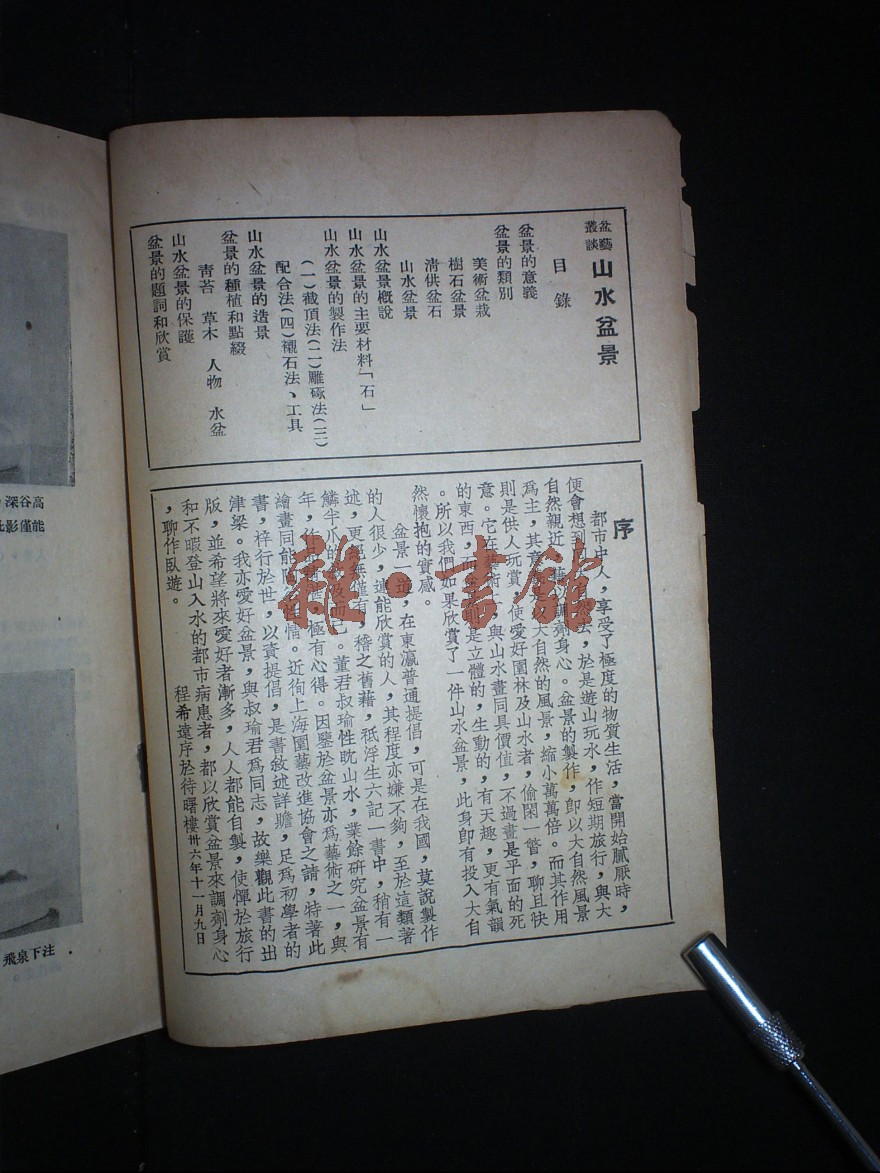 盆藝
叢談
山水盆景
目錄
盆景的意義
盆景的類別
美術盆栽
樹石盆景
清供盆石
山水盆景
山水盆景概說
山水盆景的主要材料「石」
山水盆景的製作法
(一)截頂法(二)雕琢法(三)
配合法(四)襯石法、工具
山水盆景的造景
盆景的種植和點綴
青苔 草木 人物 水盆
山水盆景的保護
盆景的題詞和欣賞
序
都市中人，享受了極度的物質生活，當開始膩厭時，
便會想到
去，於是遊山玩水，作短期旅行，與大
自然親近，
調劑身心。盆景的製作，卽以大自然風景
爲主，其
大自然的風景，縮小萬萬倍。而其作用
則是供人玩賞，使愛好園林及山水者，偷閑一瞥，聊且快
意。它在
術
，與山水畫同具價值，不過畫是平面的死
的東西，而
是立體的，生動的，有天趣，更有氣韻
。所以我們如果欣賞了一件山水盆景，此身卽有投入大自
然懷抱的實感。
盆景一道，在東瀛普通提倡，可是在我國，莫說製作
的人很少，連能欣賞的人，其程度亦嫌不夠，至於這類著
述，更
無僅有，稽之舊藉，祇浮生六記一書中，稍有一
鱗半爪的
及而已。董君叔瑜性眈山水，業餘硏究盆景有
年，
極有心得。因鑒於盆景亦爲藝術之一，與
繪畫同能
情。近徇上海園藝改進協會之請，特著此
書，梓行於世，以資提倡，是書敘述詳贍，足爲初學者的
津梁。我亦愛好盆景，與叔瑜君爲同志，故樂觀此書的出
版，並希望將來愛好者漸多，人人都能自製，使憚於旅行
和不暇登山入水的都市病患者，都以欣賞盆景來調劑身心
，聊作臥遊。
程希遠序於待曙樓卅六年十一月九日
雜·書館
高谷深
能僅影
注下泉飛